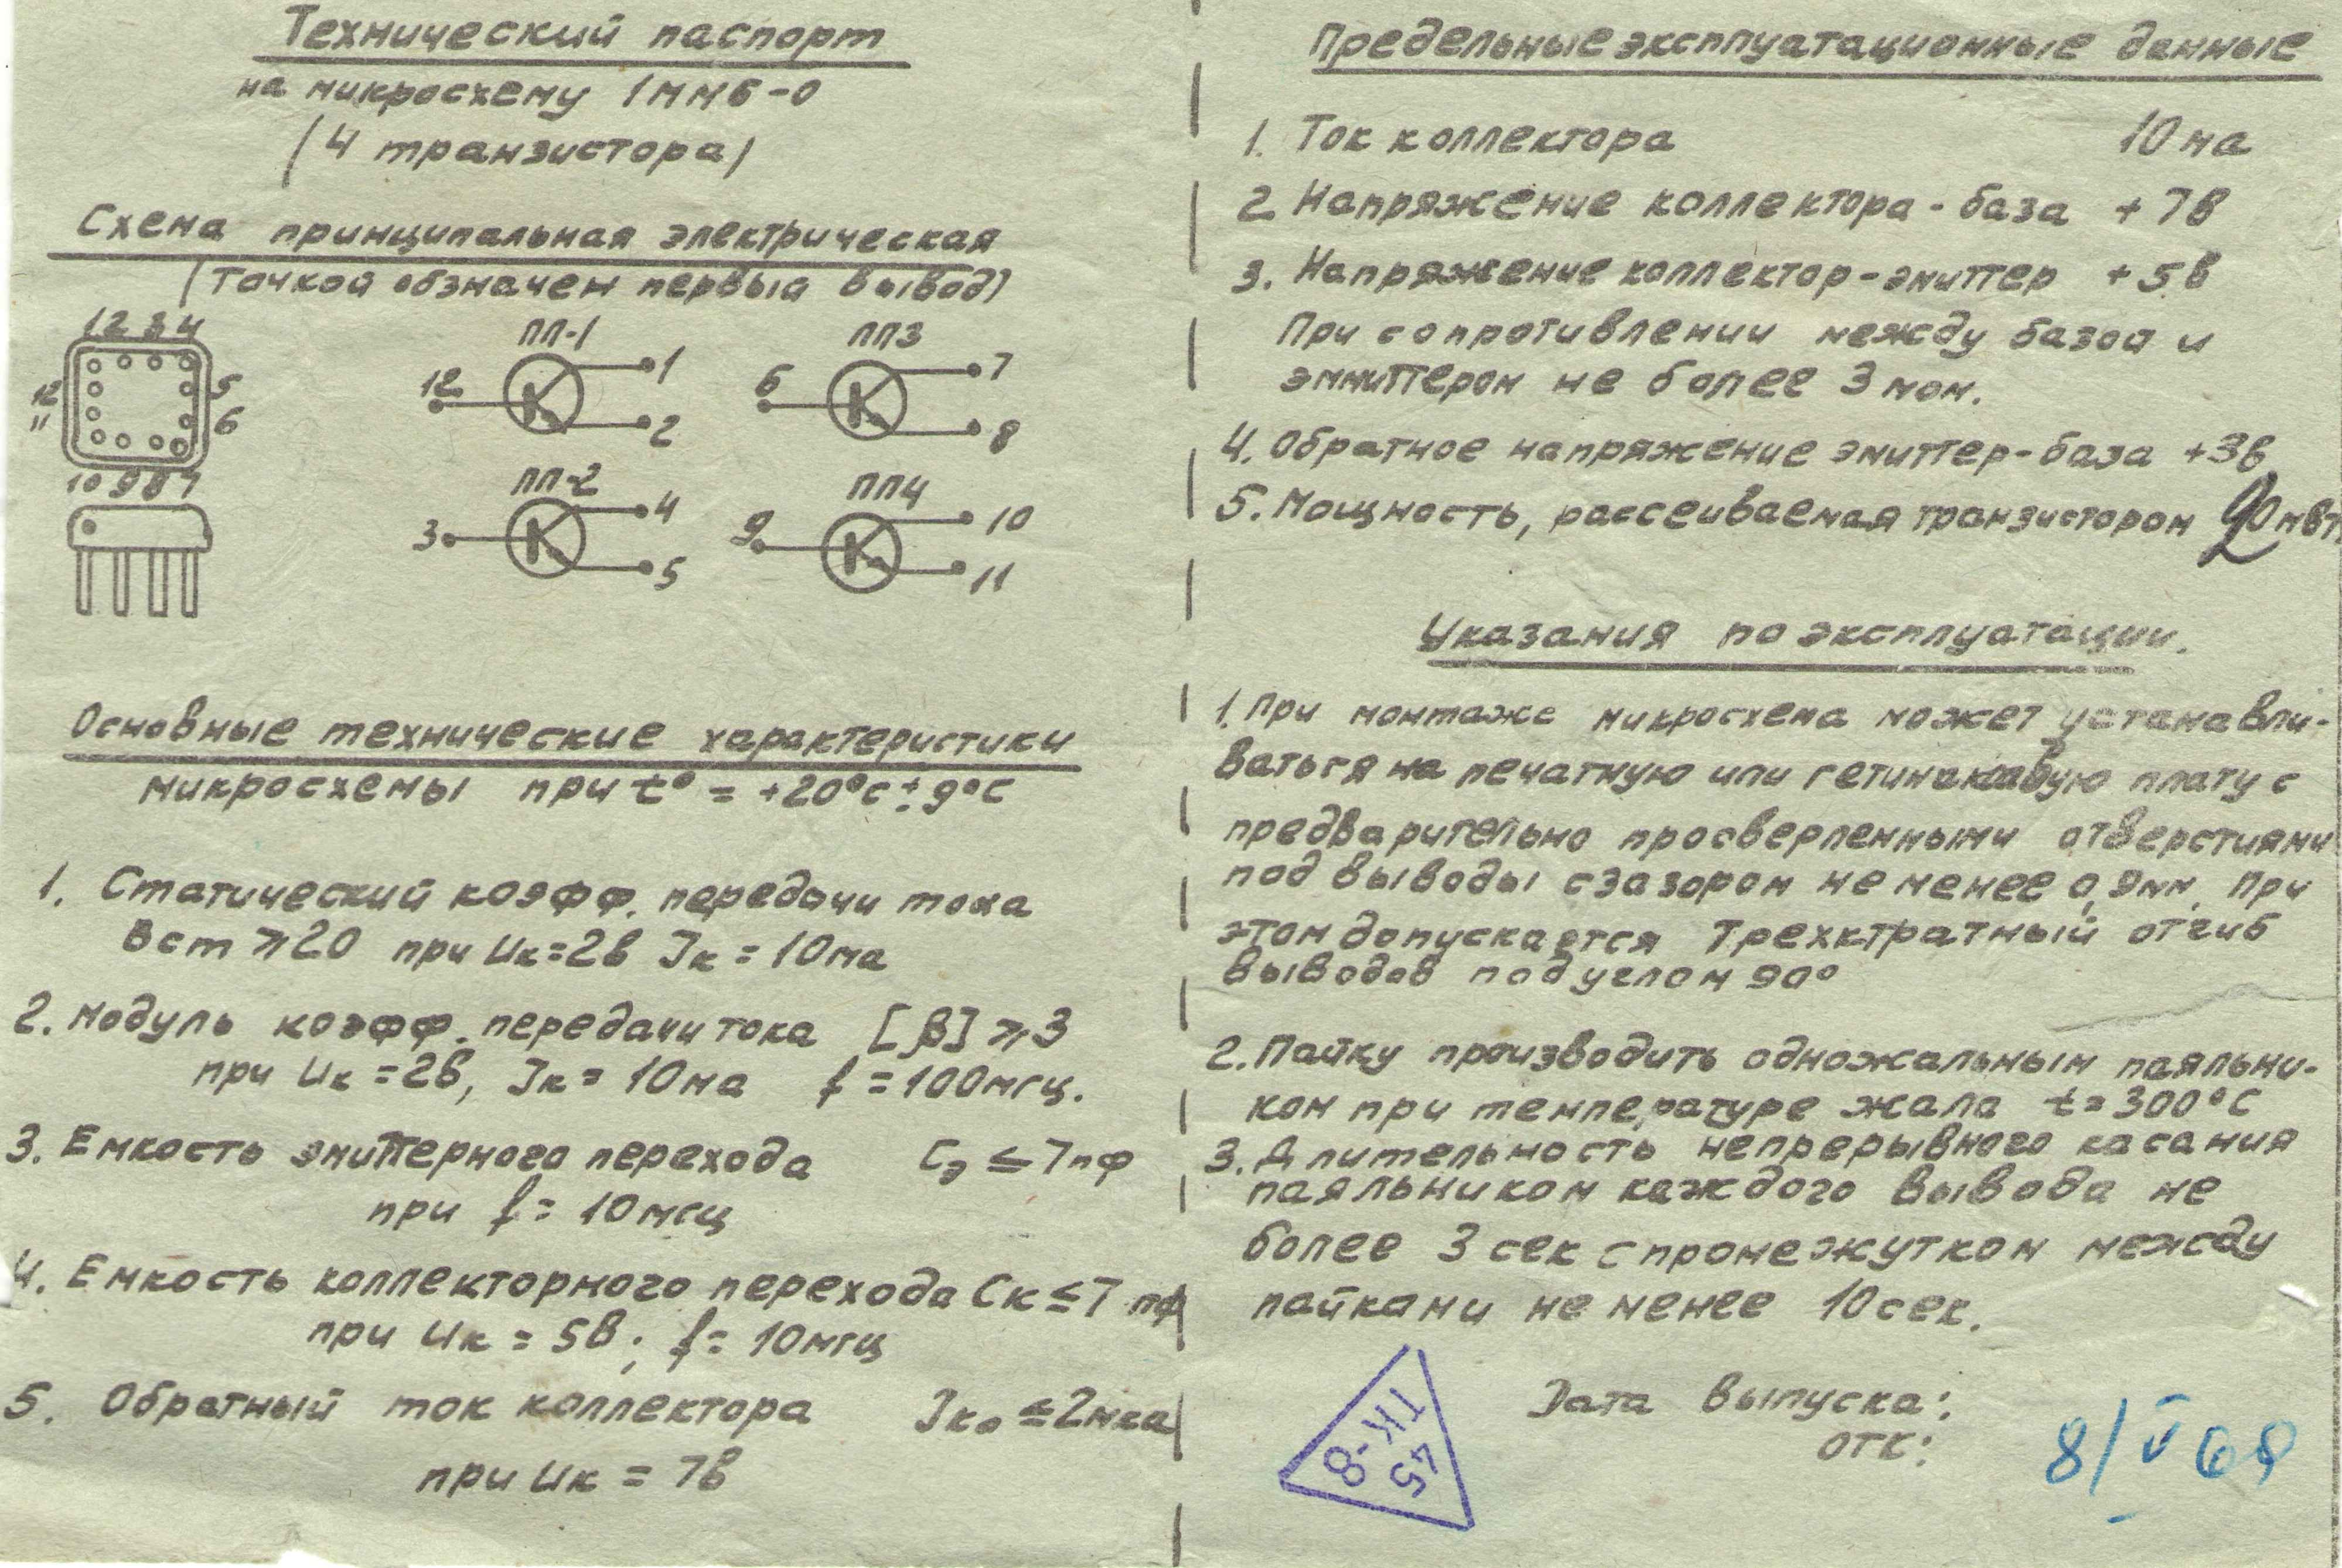 Технический паспорт
на микросхему 1мм6-0
/4 транзистора/
Схема принципиальная электрическая
/точкой обзначен первый вывод/
1 2 3 4
12
11
5
6
10 9 8 7
ПП-1
12
1
2
ПП3
6
7
8
ПП-2
3
4
5
ПП4
9
10
11
Основные технические характеристики
микросхемы при t° = +20°с ± 9°с
1. Статический коэфф. передачи тока
Вст ⩾ 20 при Uк=2в Iк = 10ма
2. Модуль коэфф. передачи тока [β] ⩾ 3
при Uк =2в, Iк = 10ма f = 100мгц.
3. Емкость эмиттерного перехода Сэ ≤ 7пф
при f = 10мгц
4. Емкость коллекторного перехода Ск ≤ 7 пф
при Uк = 5в; f = 10мгц
5. Обратный ток коллектора Iко ≤ 2мка
при Uк = 7в
Предельные эксплуатационные данные
1. Ток коллектора 10ма
2 Напряжение коллектора - база + 7в
3. Напряжение коллектор-эмиттер + 5в
При сопротивлении между базой и
эммиттером не более 3 мом.
4. Обратное напряжение эмиттер-база +3в
5. Мощность, рассеиваемая транзистором мвт.
Указания по эксплуатации.
1. При монтаже микросхема может устанавли-
ваться на печатную или гетинаковую плату с
предварительно просверленными отверстиями
под выводы с зазором не менее 0,9мм. При
этом допускается Трехктратный отгиб
выводов под углом 90°
2. Пайку производить одножальным паяльни-
ком при температуре жала t= 300°С
3. Длительность непрерывного касания
паяльником каждого вывода не
более 3 сек с промежутком между
пайками не менее 10 сек.
45
ТК-8
Дата выпуска:
ОТК:
8/V 68